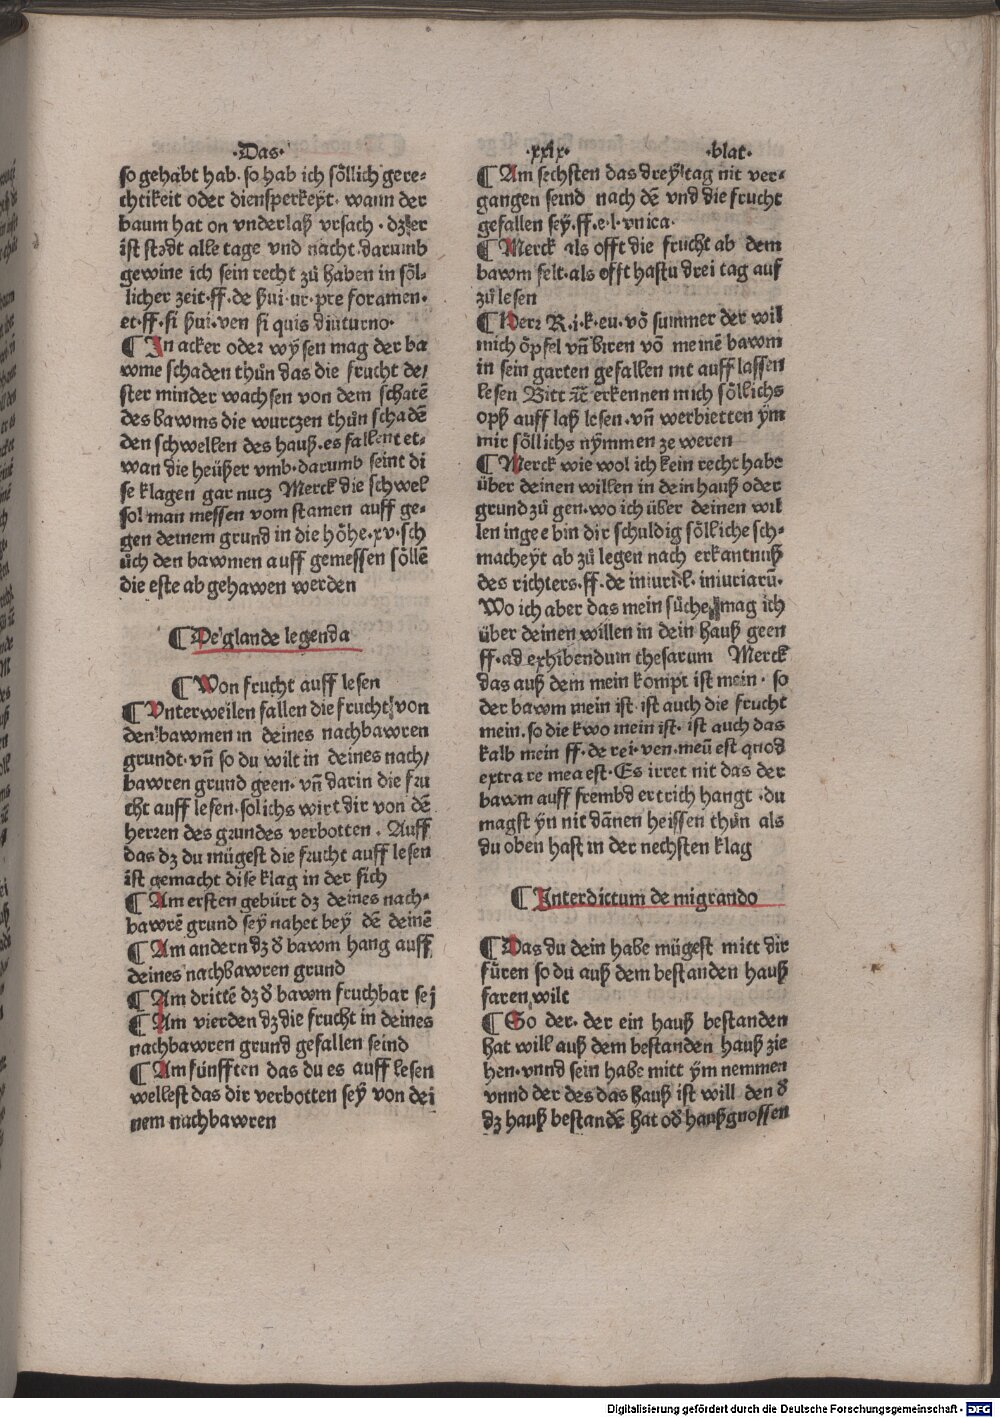 ·Das·
so gehabt hab. so hab ich söllich gere⸗
chtikeit oder diensperkeyt. wann der
baum hat on vnderlaß vrsach · dz er
ist stedt alle tage vnd nacht. darumb
gewine ich sein recht zů haben in söl⸗
licher zeit. ff. de ßui. ur. pre foramen.
et. ff. si ßui. ven si quis diuturno.
¶ In acker oder wysen mag der ba
wme schaden thůn das die frucht de/
ster minder wachsen von dem schatē
des bawms die wurtzen thůn schadē
den schwellen des hauß. es fallent et⸗
wan die heüßer vmb. darumb seint di
se klagen gar nutz Merck die schwel
sol man messen vom stamen auff ge⸗
gen deinem grund in die höhe. xv. sch
ůch den bawmen auff gemessen söllē
die este ab gehawen werden
¶ De glande legenda
¶ Von frucht auff lesen
¶ Vnterweilen fallen die frucht von
den bawmen in deines nachbawren
grundt. vñ so du wilt in deines nach/
bawren grund geen. vñ darin die fru
cht auff lesen. solichs wirt dir von dē
herren des grundes verbotten. Auff
das dz du mügest die frucht auff lesen
ist gemacht dise klag in der sich
¶ Am ersten gebürt dz deines nach⸗
bawrē grund sey nahet bey dē deinē
¶ Am andern dz d̕ bawm hang auff
deines nachbawren grund
¶ Am drittē dz d̕ bawm fruchbar sej
¶ Am vierden dz die frucht in deines
nachbawren grund gefallen seind
¶ Am fünfften das du es auff lesen
wellest das dir verbotten sey von dei
nem nachbawren
·xxix· ·blat·
¶ Am sechsten das drey tag nit ver⸗
gangen seind nach dē vnd die frucht
gefallen sey. ff. e. l. vnica.
¶ Merck als offt die frucht ab dem
bawm felt. als offt hastu drei tag auf
zů lesen
¶ Herr R. i. k. eu. vō summer der wil
mich öpfel vñ biren vō meinē bawm
in sein garten gefallen nit auff lassen
lesen Bitt ꝛc̄ erkennen mich söllichs
opß auff laß lesen. vñ werbietten ym
mir söllichs nymmen ze weren
¶ Merck wie wol ich kein recht habe
über deinen willen in dein hauß oder
grund zů gen. wo ich über deinen wil
len ingee bin dir schuldig sölliche sch⸗
macheyt ab zů legen nach erkantnuß
des richters. ff. de iniuri. l. iniuriarū.
Wo ich aber das mein sůche mag ich
über deinen willen in dein hauß geen
ff. ad exhibendum thesarum Merck
das auß dem mein kompt ist mein. so
der bawm mein ist. ist auch die frucht
mein. so die kwo mein ist. ist auch das
kalb mein ff. de rei. ven. meū est quod
extra re mea est. Es irret nit das der
bawm auff frembd ertrich hangt. du
magst yn nit dānen heissen thůn als
du oben hast in der nechsten klag
¶ Interdictum de migrando
¶ Das du dein habe mügest mitt dir
füren so du auß dem bestanden hauß
faren wilt
¶ So der. der ein hauß bestanden
hat will auß dem bestanden hauß zie
hen. vnnd sein habe mitt ym nemmen
vnnd der des das hauß ist will den d̕
dz hauß bestandē hat od̕ haußgnossen
Digitalisierung gefördert durch die Deutsche Forschungsgemeinschaft - DFG